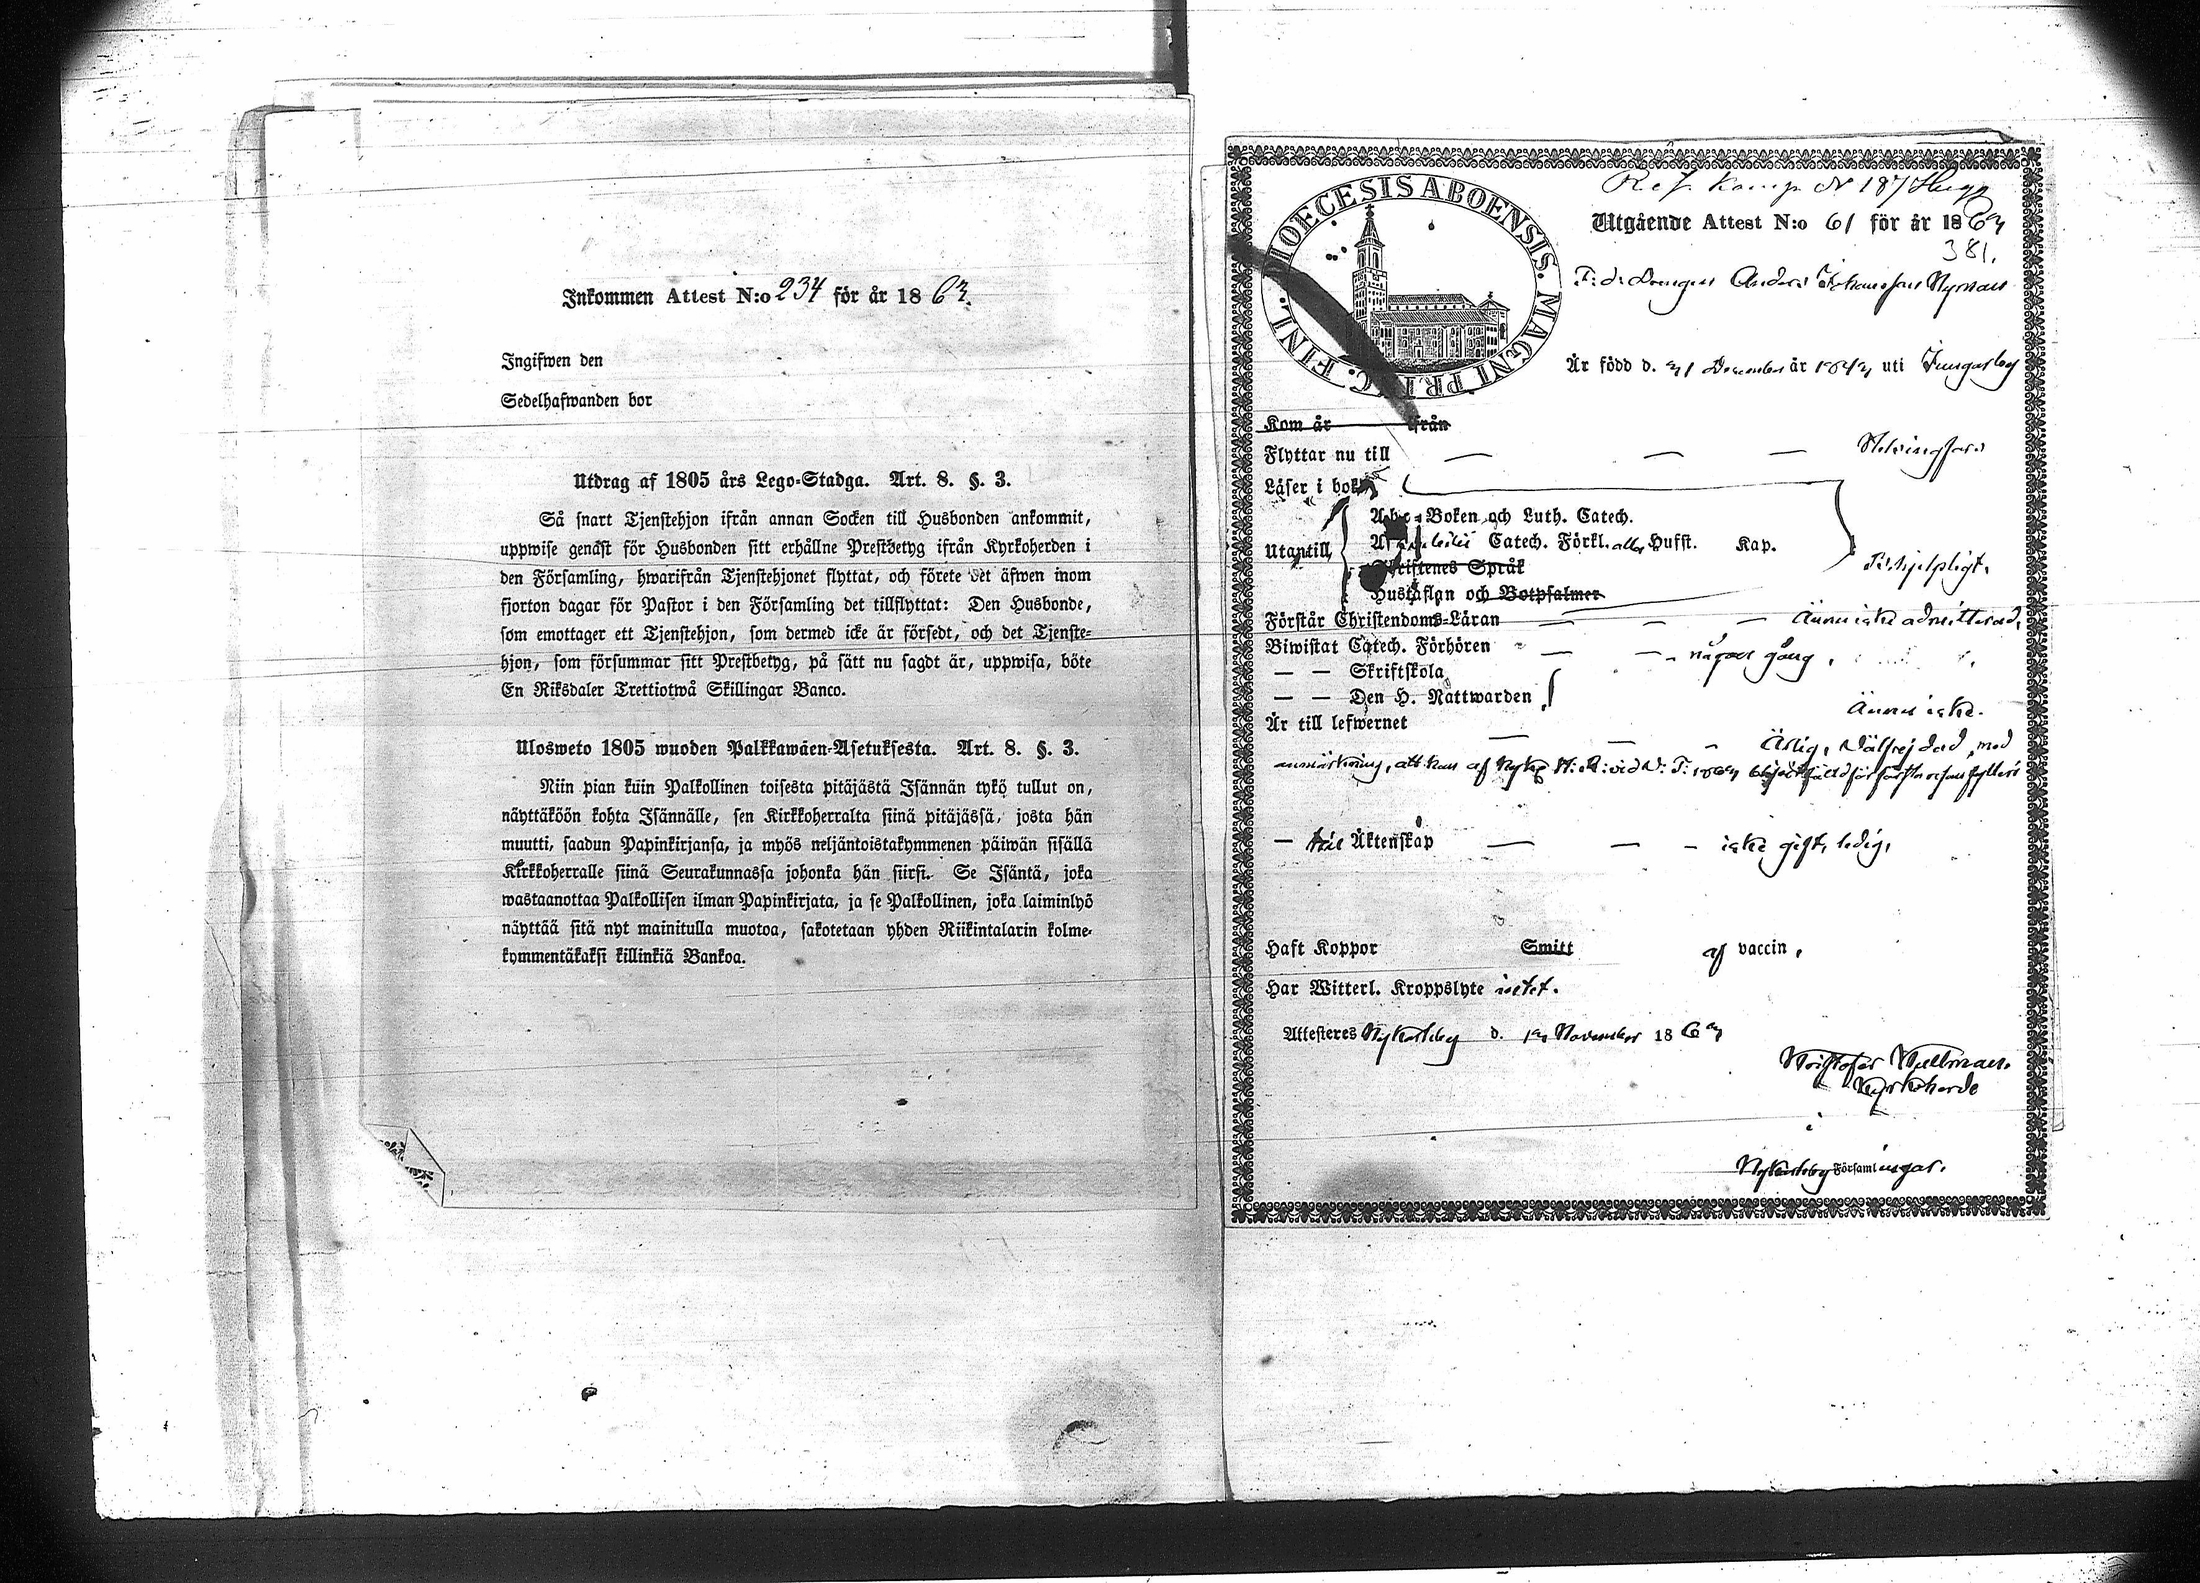 Inkommen Attest N:o 234 för år 1863.
Ingifwen den
Sedelhafwanden bor
Utdrag af 1805 års Lego-Stadga. Art. 8. §. 3.
Så snart Tjenstehjon ifrån annan Socken till Husbonden ankommit,
uppwise genast för Husbonden sitt erhållne Prestbetyg ifrån Kyrkoherden i
den Församling, hwarifrån Tjenstehjonet flyttat, och förete det äfwen inom
fjorton dagar för Pastor i den Församling det tillflyttat: Den Husbonde,
som emottager ett Tjenstehjon, som dermed icke är försedt, och det Tjenste-
hjon, som försummar sitt Prestbetyg, på sätt nu sagdt är, uppwisa, böte
En Riksdaler Trettiotwå Skillingar Banco.
Ulosweto 1805 wuoden Palkkawäen-Asetuksesta. Art. 8. §. 3.
Niin pian kuin Palkollinen toisesta pitäjästä Isännän tykö tullut on,
näyttäköön kohta Isännälle, sen Kirkkoherralta siinä pitäjässä, josta hän
muutti, saadun Papinkirjansa, ja myös neljäntoistakymmenen päiwän sisällä
Kirkkoherralle siinä Seurakunnassa johonka hän siirsi. Se Isäntä, joka
wastaanottaa Palkollisen ilman Papinkirjata, ja se Palkollinen, joka laiminlyö
näyttää sitä nyt mainitulla muotoa, sakotetaan yhden Riikintalarin kolme-
kymmentäkaksi killinkiä Bankoa.
DIOECESIS ABOENSIS. MAGNI PRINC. FINL.
N 187
Utgående Attest N:o 61 för år 1863
381.
F: d: Drengen Anders Johansson Nyman
Är född d. 31 December år 1843 uti Jungarby
Kom år ifrån
Flyttar nu till — — — Helsingfors
Läser i bok
Utantill
Abc-Boken och Luth. Catech.
Catech. Förkl. Hufst. Kap.
Skriftenes Språk
Hustaflan och Botpsalmer
Försvarligt.
Förstår Christendoms-Läran — — — Ännu icke admitterad,
Biwistat Catech. Förhören — — någon gång,
— — Skriftskola
— — Den H. Nattwarden
Ännu icke.
Är till lefwernet — — - Ärlig, välfrejdad, med
anmärkning, att han af H: R: vid W: T: 1863
— till Äktenskap — — - icke gift, ledig,
Haft Koppor Smitt af vaccin,
Har Witterl. Kroppslyte intet.
Attesteres Nykarleby d. 13 November 1863
Kyrkoherde
i
Nykarleby Församlingar.